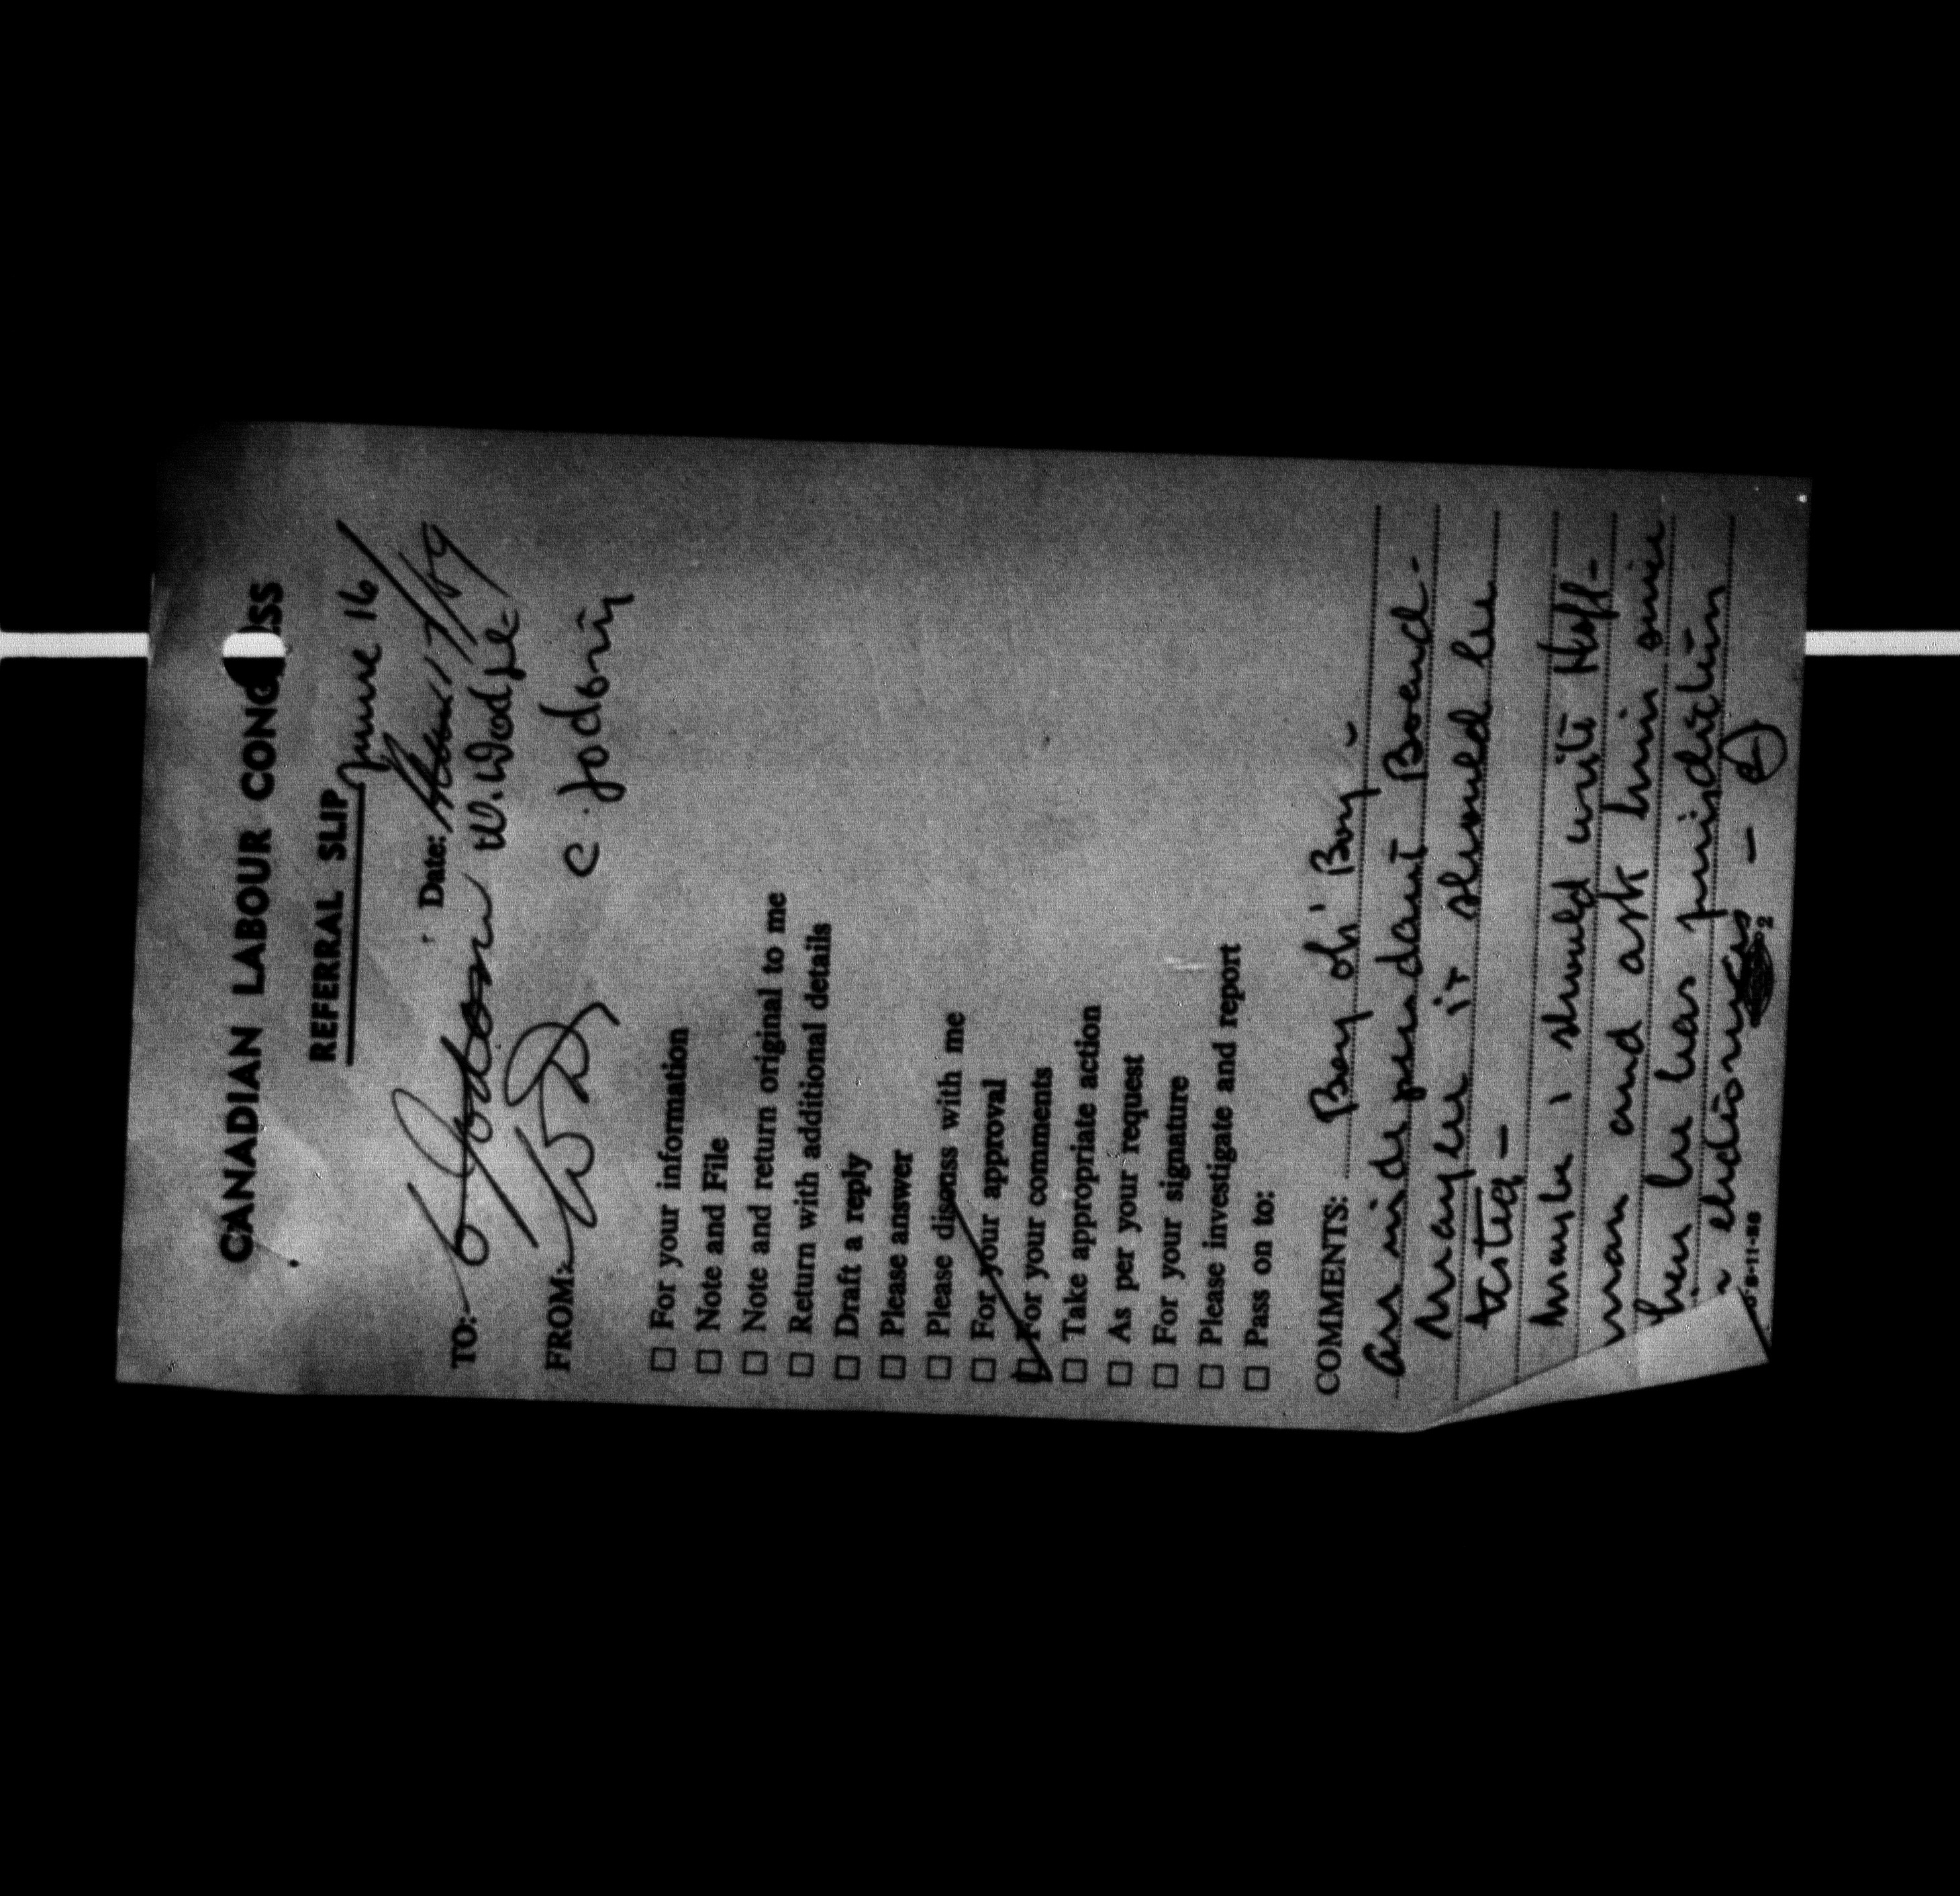 CANADIAN LABOUR CONG SS
REFERRAL SLIP
June 16
Date: 7/69
TO:- C Jodoin W. Dodge
FROM:- WD C. Jodoin
□ For your information
□ Note and File
□ Note and return original to me
□ Return with additional details
□ Draft a reply
□ Please answer
□ Please discuss with me
□ For your approval
□ For your comments
□ Take appropriate action
□ As per your request
□ For your signature
□ Please investigate and report
□ Pass on to:
COMMENTS: Boy oh' Boy -
an independant Board -
Maybe it should be
tested -
Maybe i should write Haff-
man and ask him since
he has jurisdiction
2